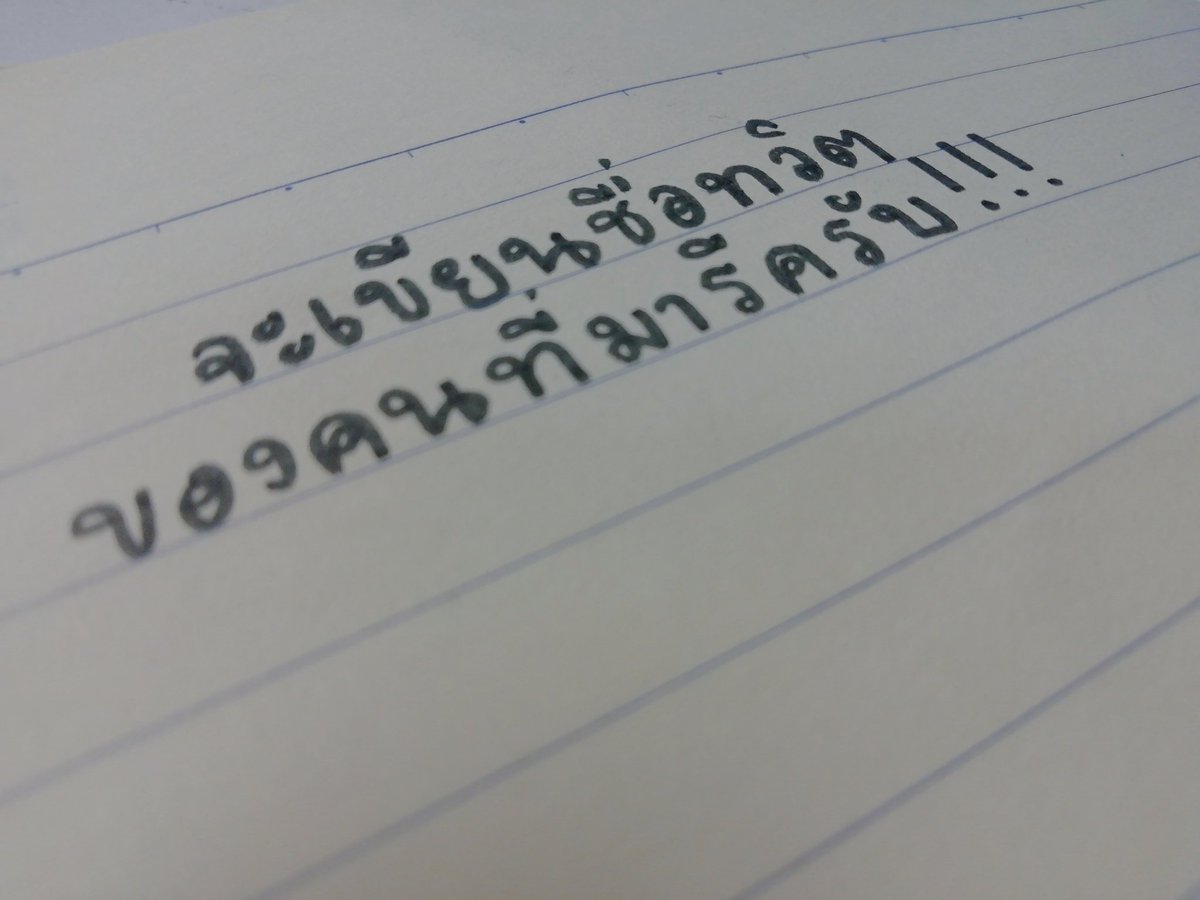 จะเขียนชื่อทวิต
ของคนที่มารีครับ!!!